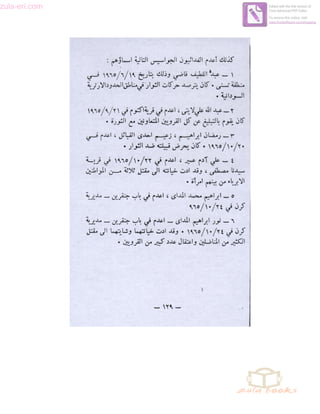 zula-eri.com
Edited with the trial version of
Foxit Advanced PDF Editor
To remove this notice, visit:
www.foxitsoftware.com/shopping
كذلك أعدم الفدائيون الجواسيس التالية اسماؤهم :
١ ـ عبد اللطيف قاضي وذلك بتاريخ ١٩٦٥/٦/١٩ فـي
منطقة تسنى • كان يترصد حركات الثوار في مناطق الحدود الارترية
السودانية •
٢ ـ عبد الله علي لابنى ، اعدم في قرية اكتوم في ١٩٦٥/٩/٢١
كان يقوم بالتبليغ عن كل القرويين المتعاونين مع الثورة •
٣ ـ رمضان ابراهيـم ، زعيـم احدى القبائل ، اعدم فـي
١٩٦٥/١٠/٢٠ • كان يحرض قبيلته ضد الثوار •
٤ ـ علي آدم عمير ، اعدم في ١٩٦٥/١٠/٢٢ في قريـة
سيدنا مصطفى ، وقد ادت خيانته الى مقتل ثلاثة مـن المواطنين
الابرياء من بينهم امرأة •
٥ ـ ابراهيم محمد المداى ، اعدم في باب جنقرين ـ مديرية
كرن في ٩٦٥/١٠/٢٤
٦ ـ نور ابراهيم المداى ـ اعدم في باب جنقرين ـ مديرية
كرن في ١٩٦٥/١٠/٢٤ • وقد ادت خيانتهما وشايتهما الى مقتل
الكثير من المناضلين واعتقال عدد كبير من القرويين •
ـ ١٢٩ ـ